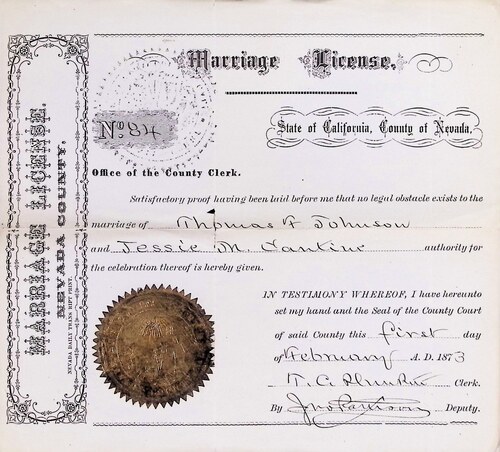 Marriage License.
No. 84
State of California, County of Nevada.
Office of the County Clerk.
Satisfactory proof having been laid before me that no legal obstacle exists to the
marriage of Thomas F Johnson
and Jessie M. Cantine authority for
the celebration thereof is hereby given.
IN TESTIMONY WHEREOF, I have hereunto
set my hand and the Seal of the County Court
of said County this first day
of February A. D. 1873
T. C. Clerk.
By Jno Pattison Deputy.
MARRIAGE LICENSE.
NEVADA COUNTY.
NEVADA DAILY TRANSCRIPT PRINT.